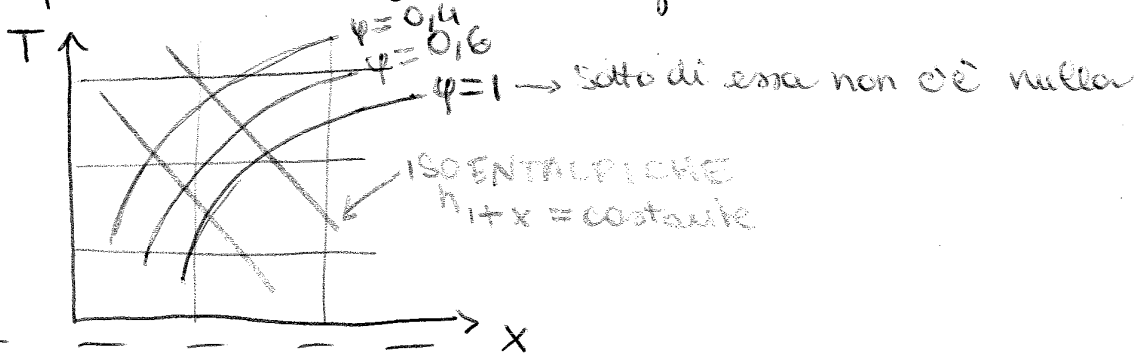 T
φ=0,4
φ=0,6
φ=1 → sotto di essa non c'è nulla
ISOENTALPICHE
h1+x = costante
x